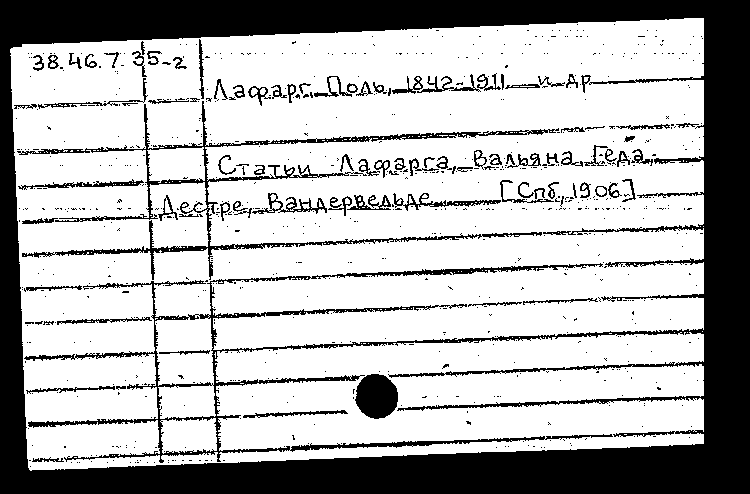 38.46.7.35-2
Лафарг, Поль, 1842-1911 и др
Статьи Лафарга, Вальяна, Геда,
Дестре, Вандервельде [Спб, 1906]